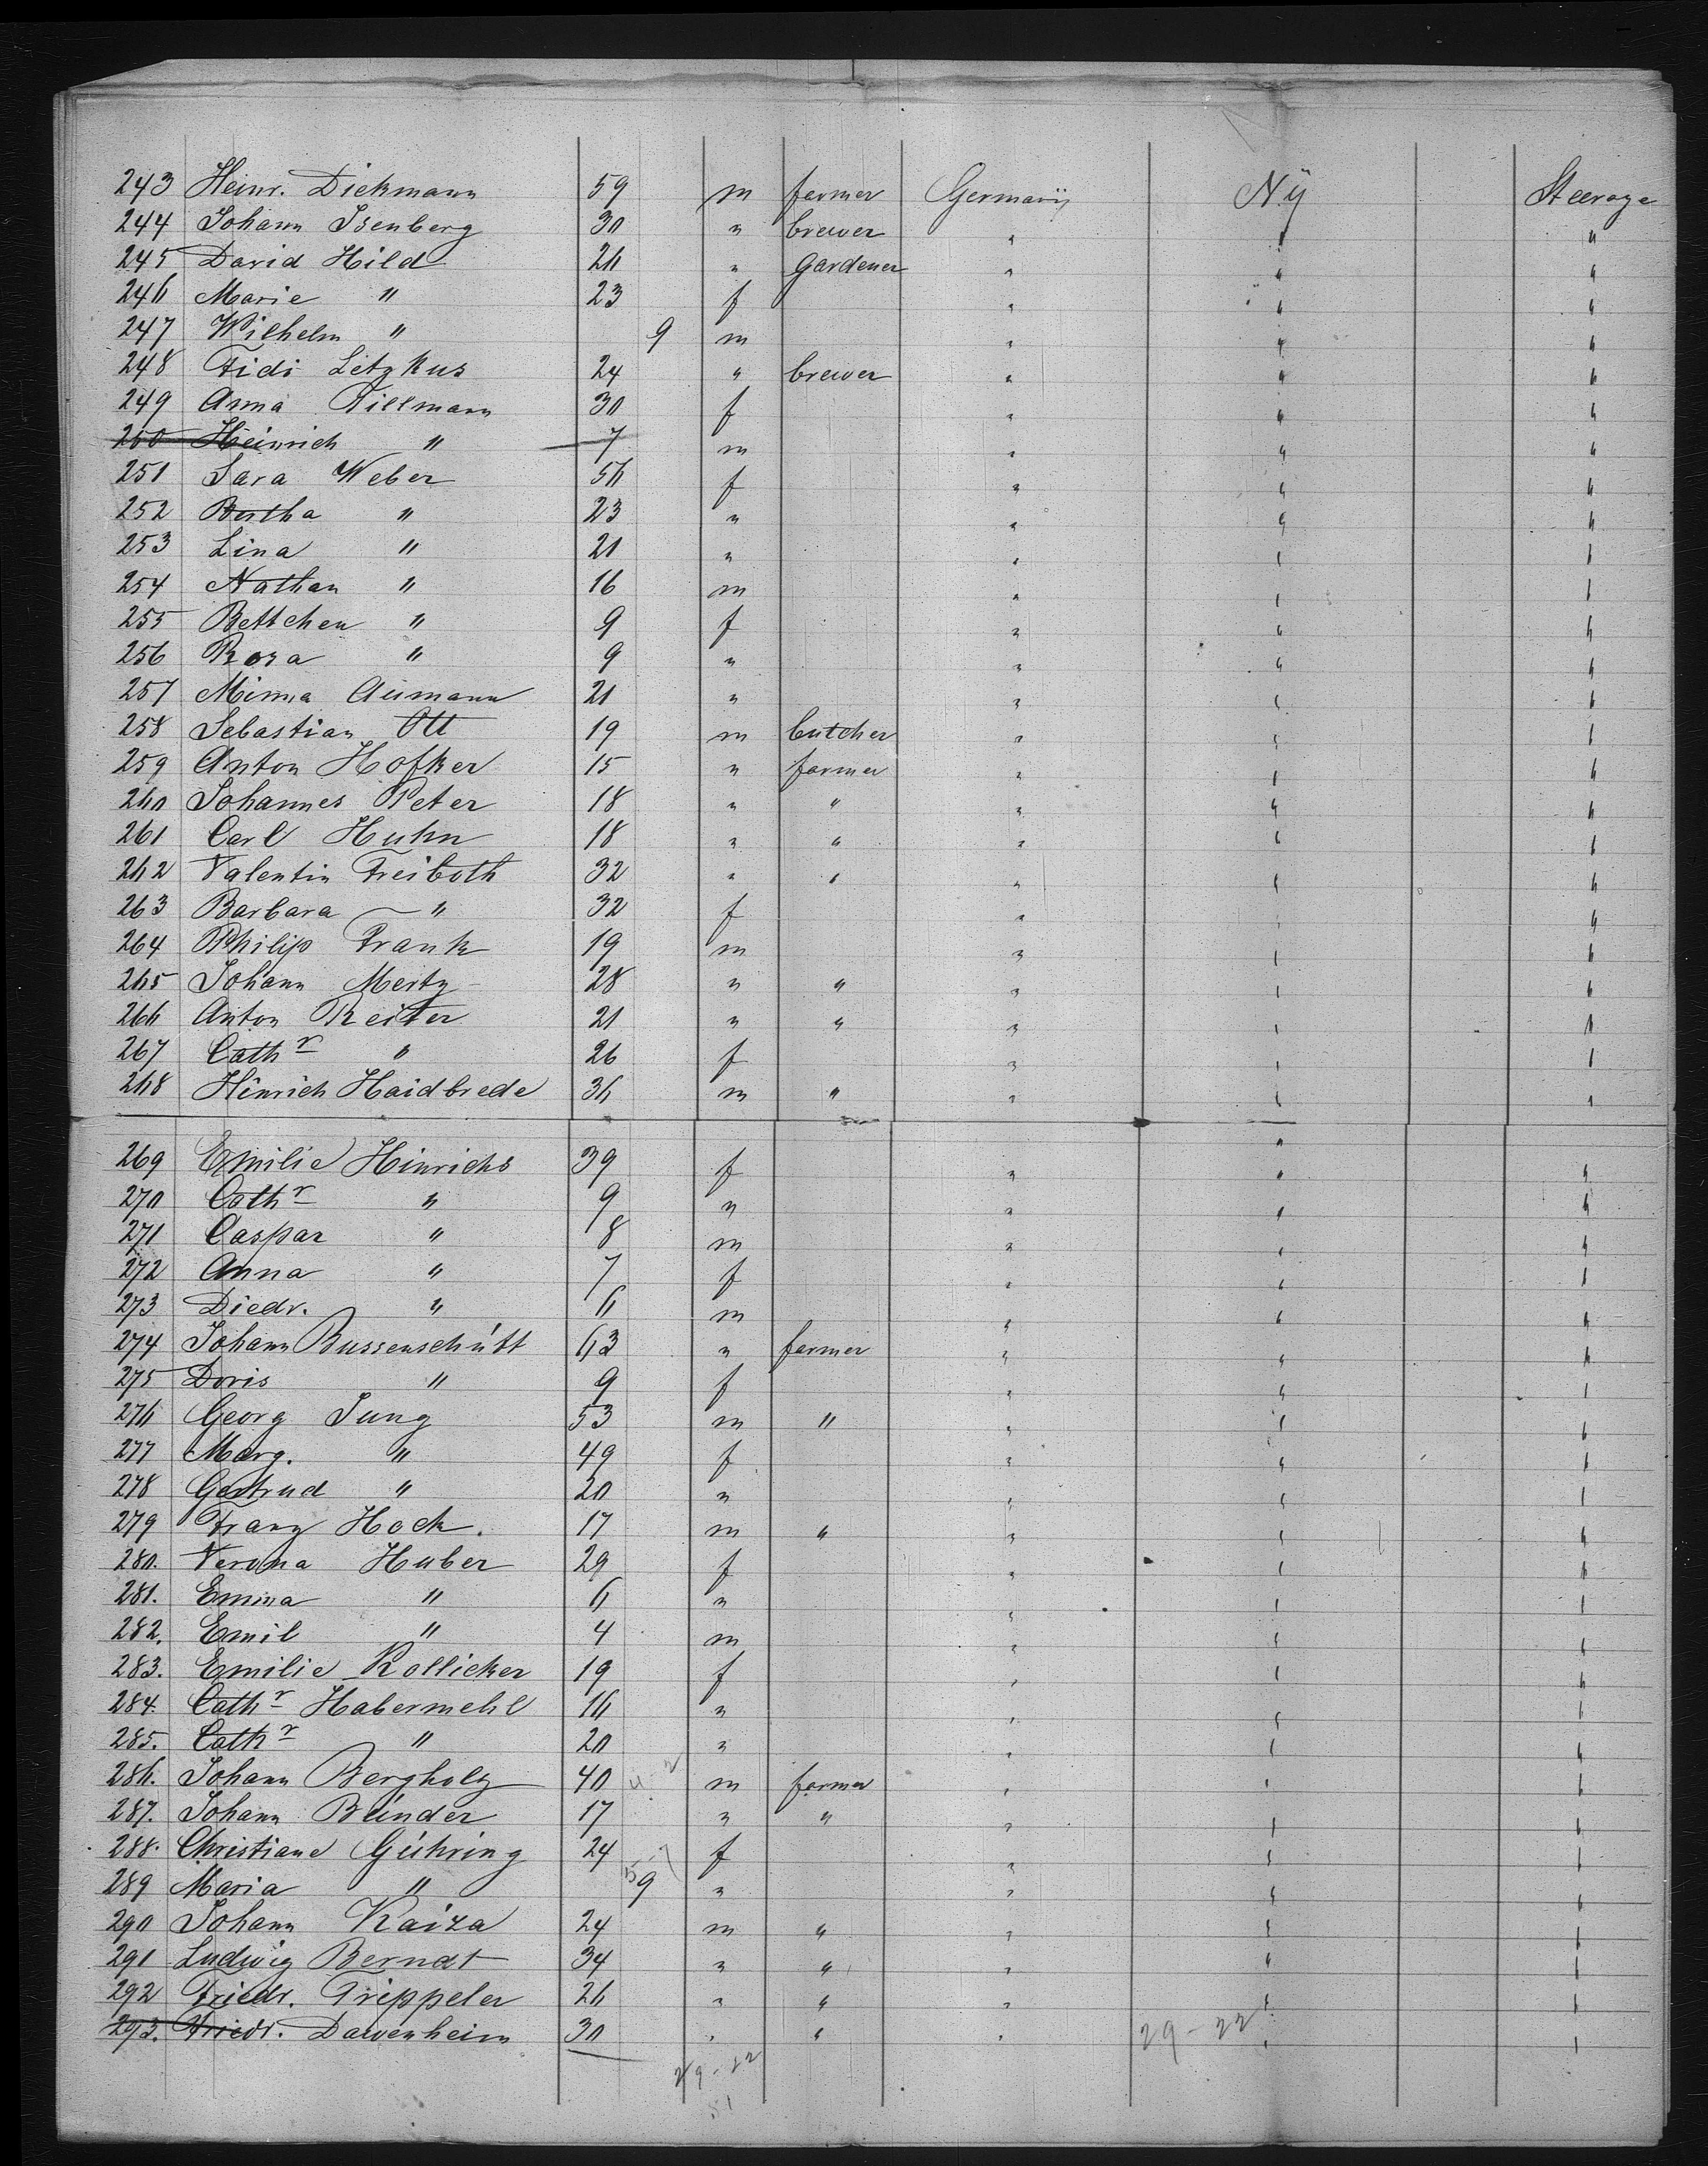 243 Heinr. Diekmann 59 m farmer Germany Ny Steerage
244 Johann Isenberg 30 " brewer " " "
245 David Hild 26 " gardener " " "
246 Marie " 23 f " " "
247 Wilhelm " 9 m " " "
248 Fidi Litzkus 24 " brewer " " "
249 Anna Tillmann 30 f " " "
250 Heinrich " 7 m " " "
251 Sara Weber 56 f " " "
252 Bertha " 23 " " " "
253 Lina " 21 " " " "
254 Nathan " 16 m " " "
255 Bettchen " 9 f " " "
256 Rosa " 9 " " " "
257 Minna Aumann 21 " " " "
258 Sebastian Ott 19 m butcher " " "
259 Anton Hofker 15 " farmer " " "
260 Johannes Peter 18 " " " " "
261 Carl Huhn 18 " " " " "
262 Valentin Freiboth 32 " " " " "
263 Barbara " 32 f " " "
264 Philip Frank 19 m " " "
265 Johann Mertz 28 " " " " "
266 Anton Reiter 21 " " " " "
267 Cathr " 26 f " " "
268 Hinrich Haidbrede 36 m " " " "
269 Emilie Hinrichs 39 f " " "
270 Cathr " 9 " " " "
271 Caspar " 8 m " " "
272 Anna " 7 f " " "
273 Diedr. " 6 m " " "
274 Johann Bussenschütt 63 " farmer " " "
275 Doris " 9 f " " "
276 Georg Jung 53 m " " " "
277 Marg. " 49 f " " "
278 Gertrud " 20 " " " "
279 Franz Hock. 17 m " " " "
280. Verona Huber 29 f " " "
281. Emma " 6 " " " "
282. Emil " 4 m " " "
283. Emilie Kollicker 19 f " " "
284. Cathr Habermehl 16 " " " "
285. Cathr " 20 " " " "
286. Johann Bergholz 40 m farmer " " "
287. Johann Bünder 17 " " " " "
288. Christiane Gühring 24 f " " "
289 Maria " 9 " " " "
290 Johann Kaiza 24 m " " " "
291 Ludwig Berndt 34 " " " " "
292 Friedr. Trippeler 26 " " " " "
293. Friedr. Dawenheim 30 " " " 29-22 " "
29-22
51